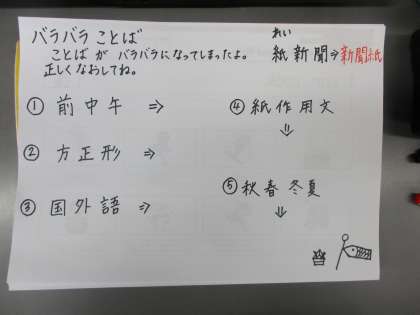 バラバラ ことば
ことば が バラバラになってしまったよ。
正しくなおしてね。
れい
紙新聞⇒新聞紙
① 前中午 ⇒
② 方正形 ⇒
③ 国外語 ⇒
④ 紙作用文
⇓
⑤ 秋春冬夏
⇓